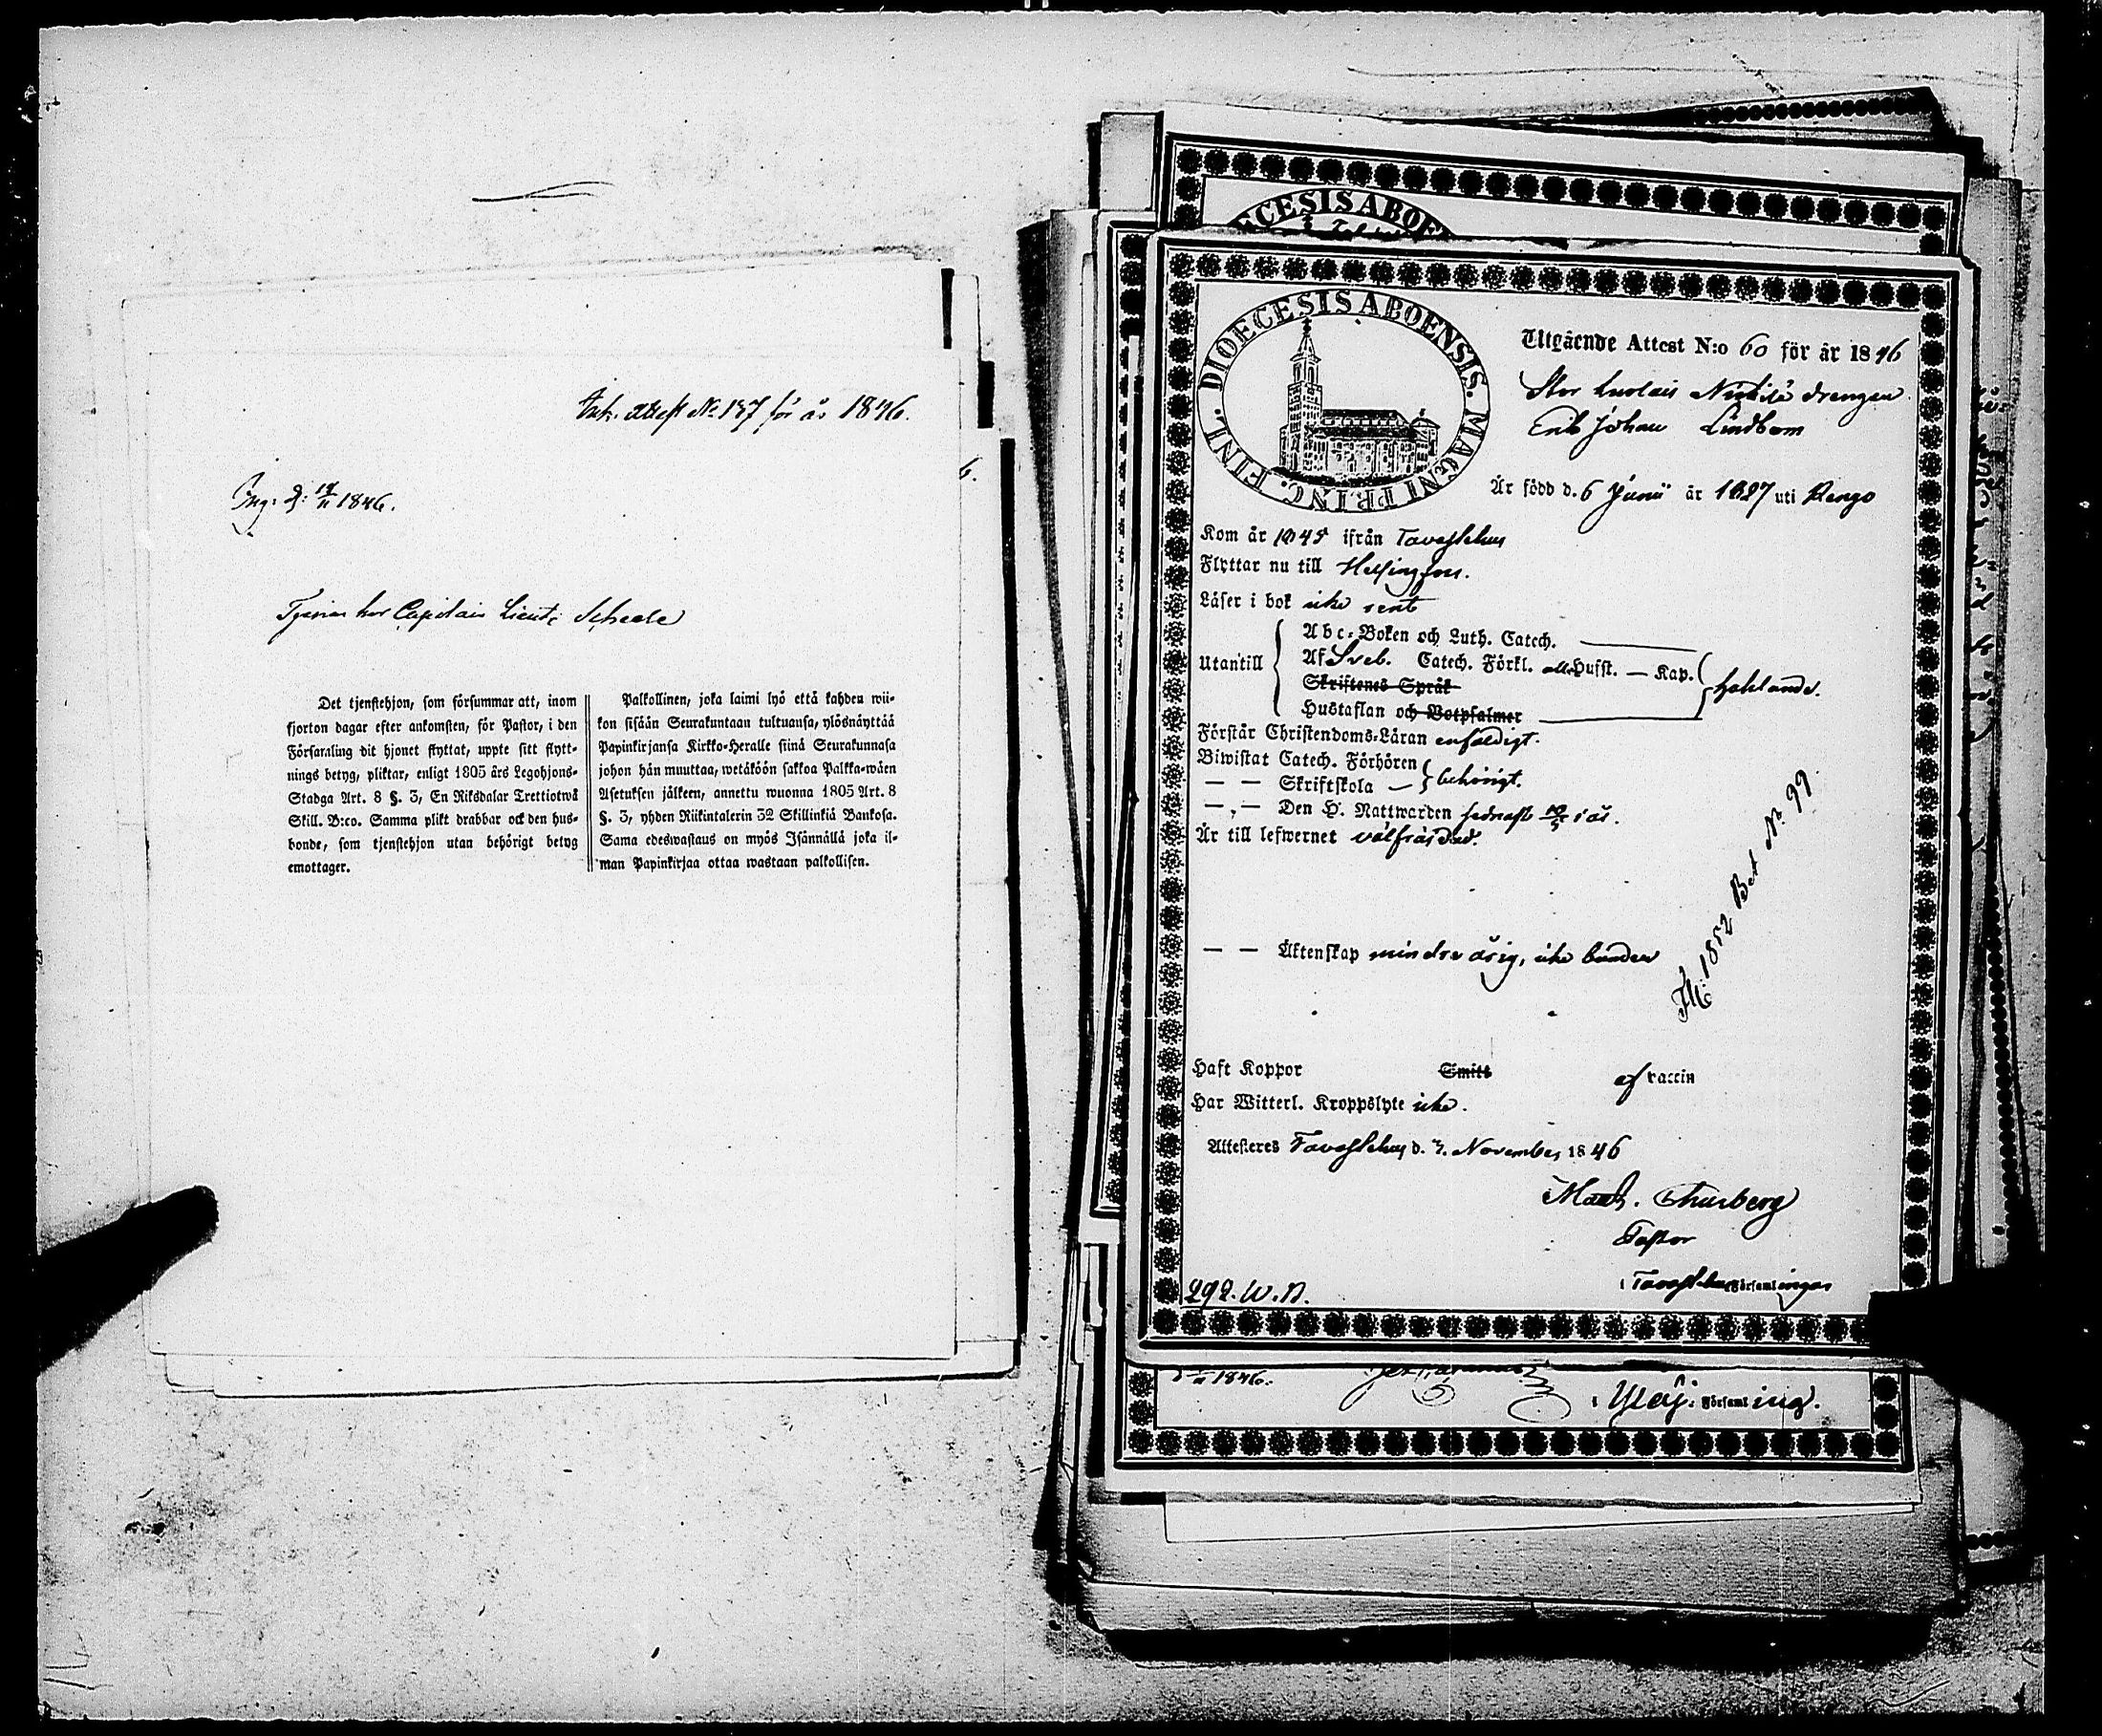 Ank. attest No 137 för år 1846.
Ing. d: 14/11 1846.
Tjenar hos Capitain Lieut: Scheele
Det tjenstehjon, som försummar att, inom
fjorton dagar efter ankomsten, för Pastor, i den
Församling dit hjonet flyttat, uppte sitt flytt-
nings betyg, pliktar, enligt 1805 års Legohjons-
Stadga Art. 8 §. 3, En Riksdalar Trettiotwå
Skill. B:co. Samma plikt drabbar ock den hus-
bonde, som tjenstehjon utan behörigt betyg
emottager.
Palkollinen, joka laimi lyö että kahden wii-
kon sisään Seurakuntaan tultuansa, ylösnäyttää
Papinkirjansa Kirkko-Heralle siinä Seurakunnasa
johon hän muuttaa, wetäköön sakkoa Palkka-wäen
Asetuksen jälkeen, annettu wuonna 1805 Art. 8
§. 3, yhden Riikintalerin 32 Skillinkiä Bankosa.
Sama edeswastaus on myös Isännällä joka il-
man Papinkirjaa ottaa wastaan palkollisen.
6.
ECESIS ABOE
DIOECESIS ABOENSIS. MAGNI PRINC. FINL.
Utgående Attest N:o 60 för år 1846
Stor Luolais Nickilä drengen
Erik Johan Lindbom
Är född d. 6 Junii år 1827 uti Rengo
Kom år 1845 ifrån Tavastehus
Flyttar nu till Helsingfors.
Läser i bok icke rent
Abc-Boken och Luth. Catech.
Utantill Af Sveb. Catech. Förkl. Hufst. — Kap. haklande.
Skriftenes Språk
Hustaflan och Botpsalmer
Förstår Christendoms-Läran enfaldigt.
Biwistat Catech. Förhören behörigt.
— — Skriftskola —
— „ — Den H. Nattwarden sednast i år.
Är till lefwernet välfräjdad.
— — Äktenskap minderårig, icke bunden
1852 Bet No 99.
Haft Koppor Smitt af vaccin
Har Witterl. Kroppslyte icke.
Attesteras Tavastehus d. 3. November 1846
Thurberg
Pastor
i Tavastehus Församlingar
292. W. A.
1846.
i Församling.